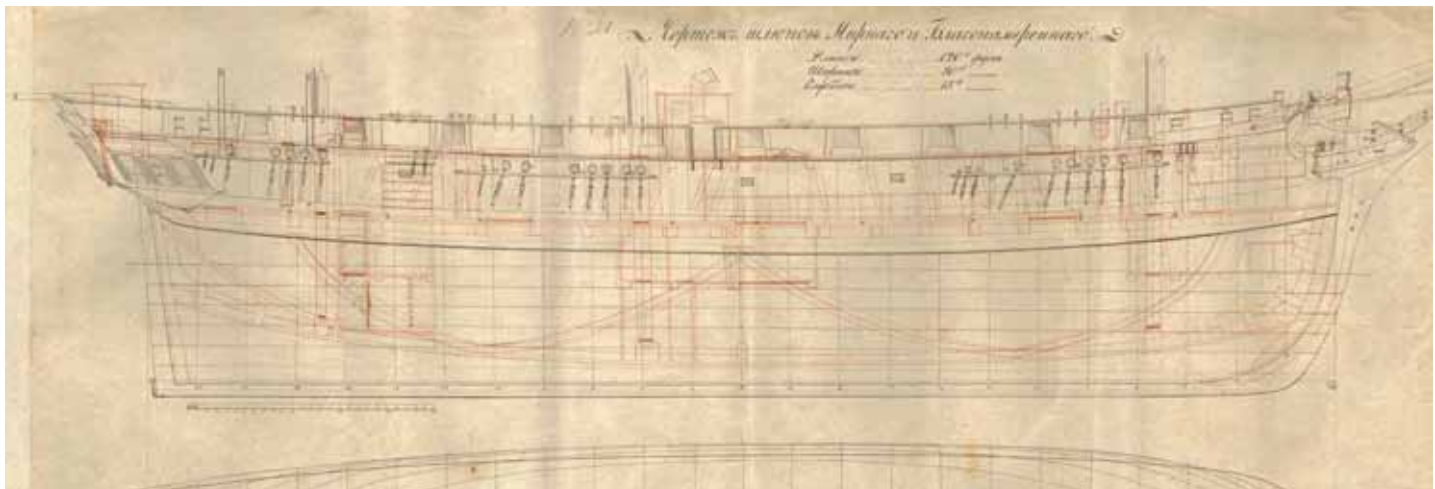 Чертежъ шлюповъ Мирнаго и Благонамереннаго.
Длина 120 футъ
Ширина 30
Глубина 15